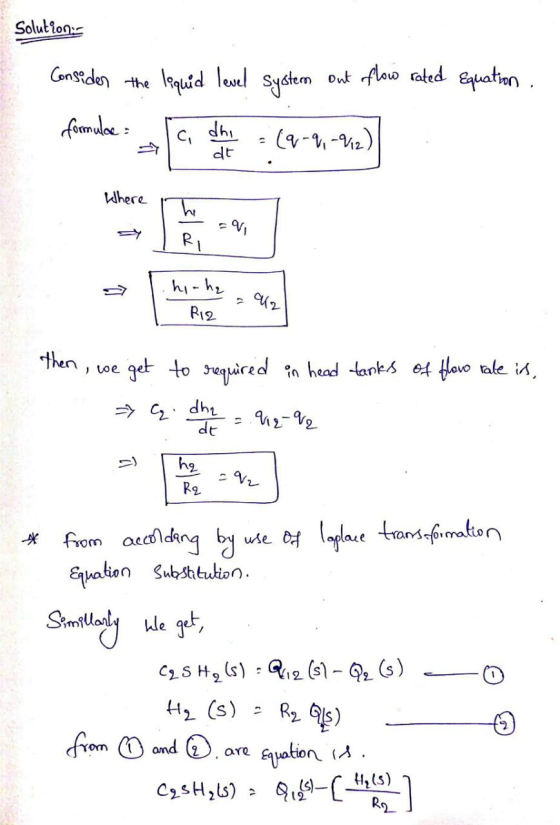 Solution:-
Consider the liquid level system out flow rated Equation.
formulae :
⇒ C₁ dh₁/dt = (q-q₁-q₁₂)
Where
⇒ h₁/R₁ = q₁
⇒ h₁-h₂/R₁₂ = q₁₂
then, we get to required in head tanks of flow rate is,
⇒ C₂. dh₂/dt = q₁₂-q₂
⇒ h₂/R₂ = q₂
* from accolding by use of laplace transformation
Equation Substitution.
Similarly We get,
C₂S H₂(s) = Q₁₂(s) - Q₂(s) — ①
H₂(s) = R₂ Q₂(s) — ②
from ① and ②. are equation is.
C₂SH₂(s) = Q₁₂(s) - [H₂(s)/R₂]